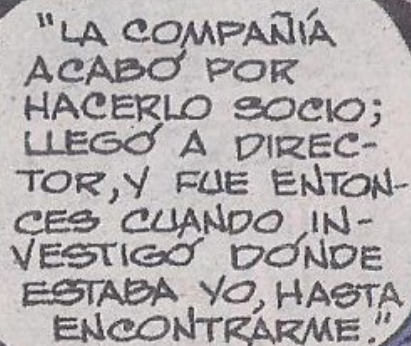 "LA COMPAÑÍA
ACABÓ POR
HACERLO SOCIO;
LLEGÓ A DIREC-
TOR, Y FUE ENTON-
CES CUANDO IN-
VESTIGÓ DÓNDE
ESTABA YO, HASTA
ENCONTRARME."